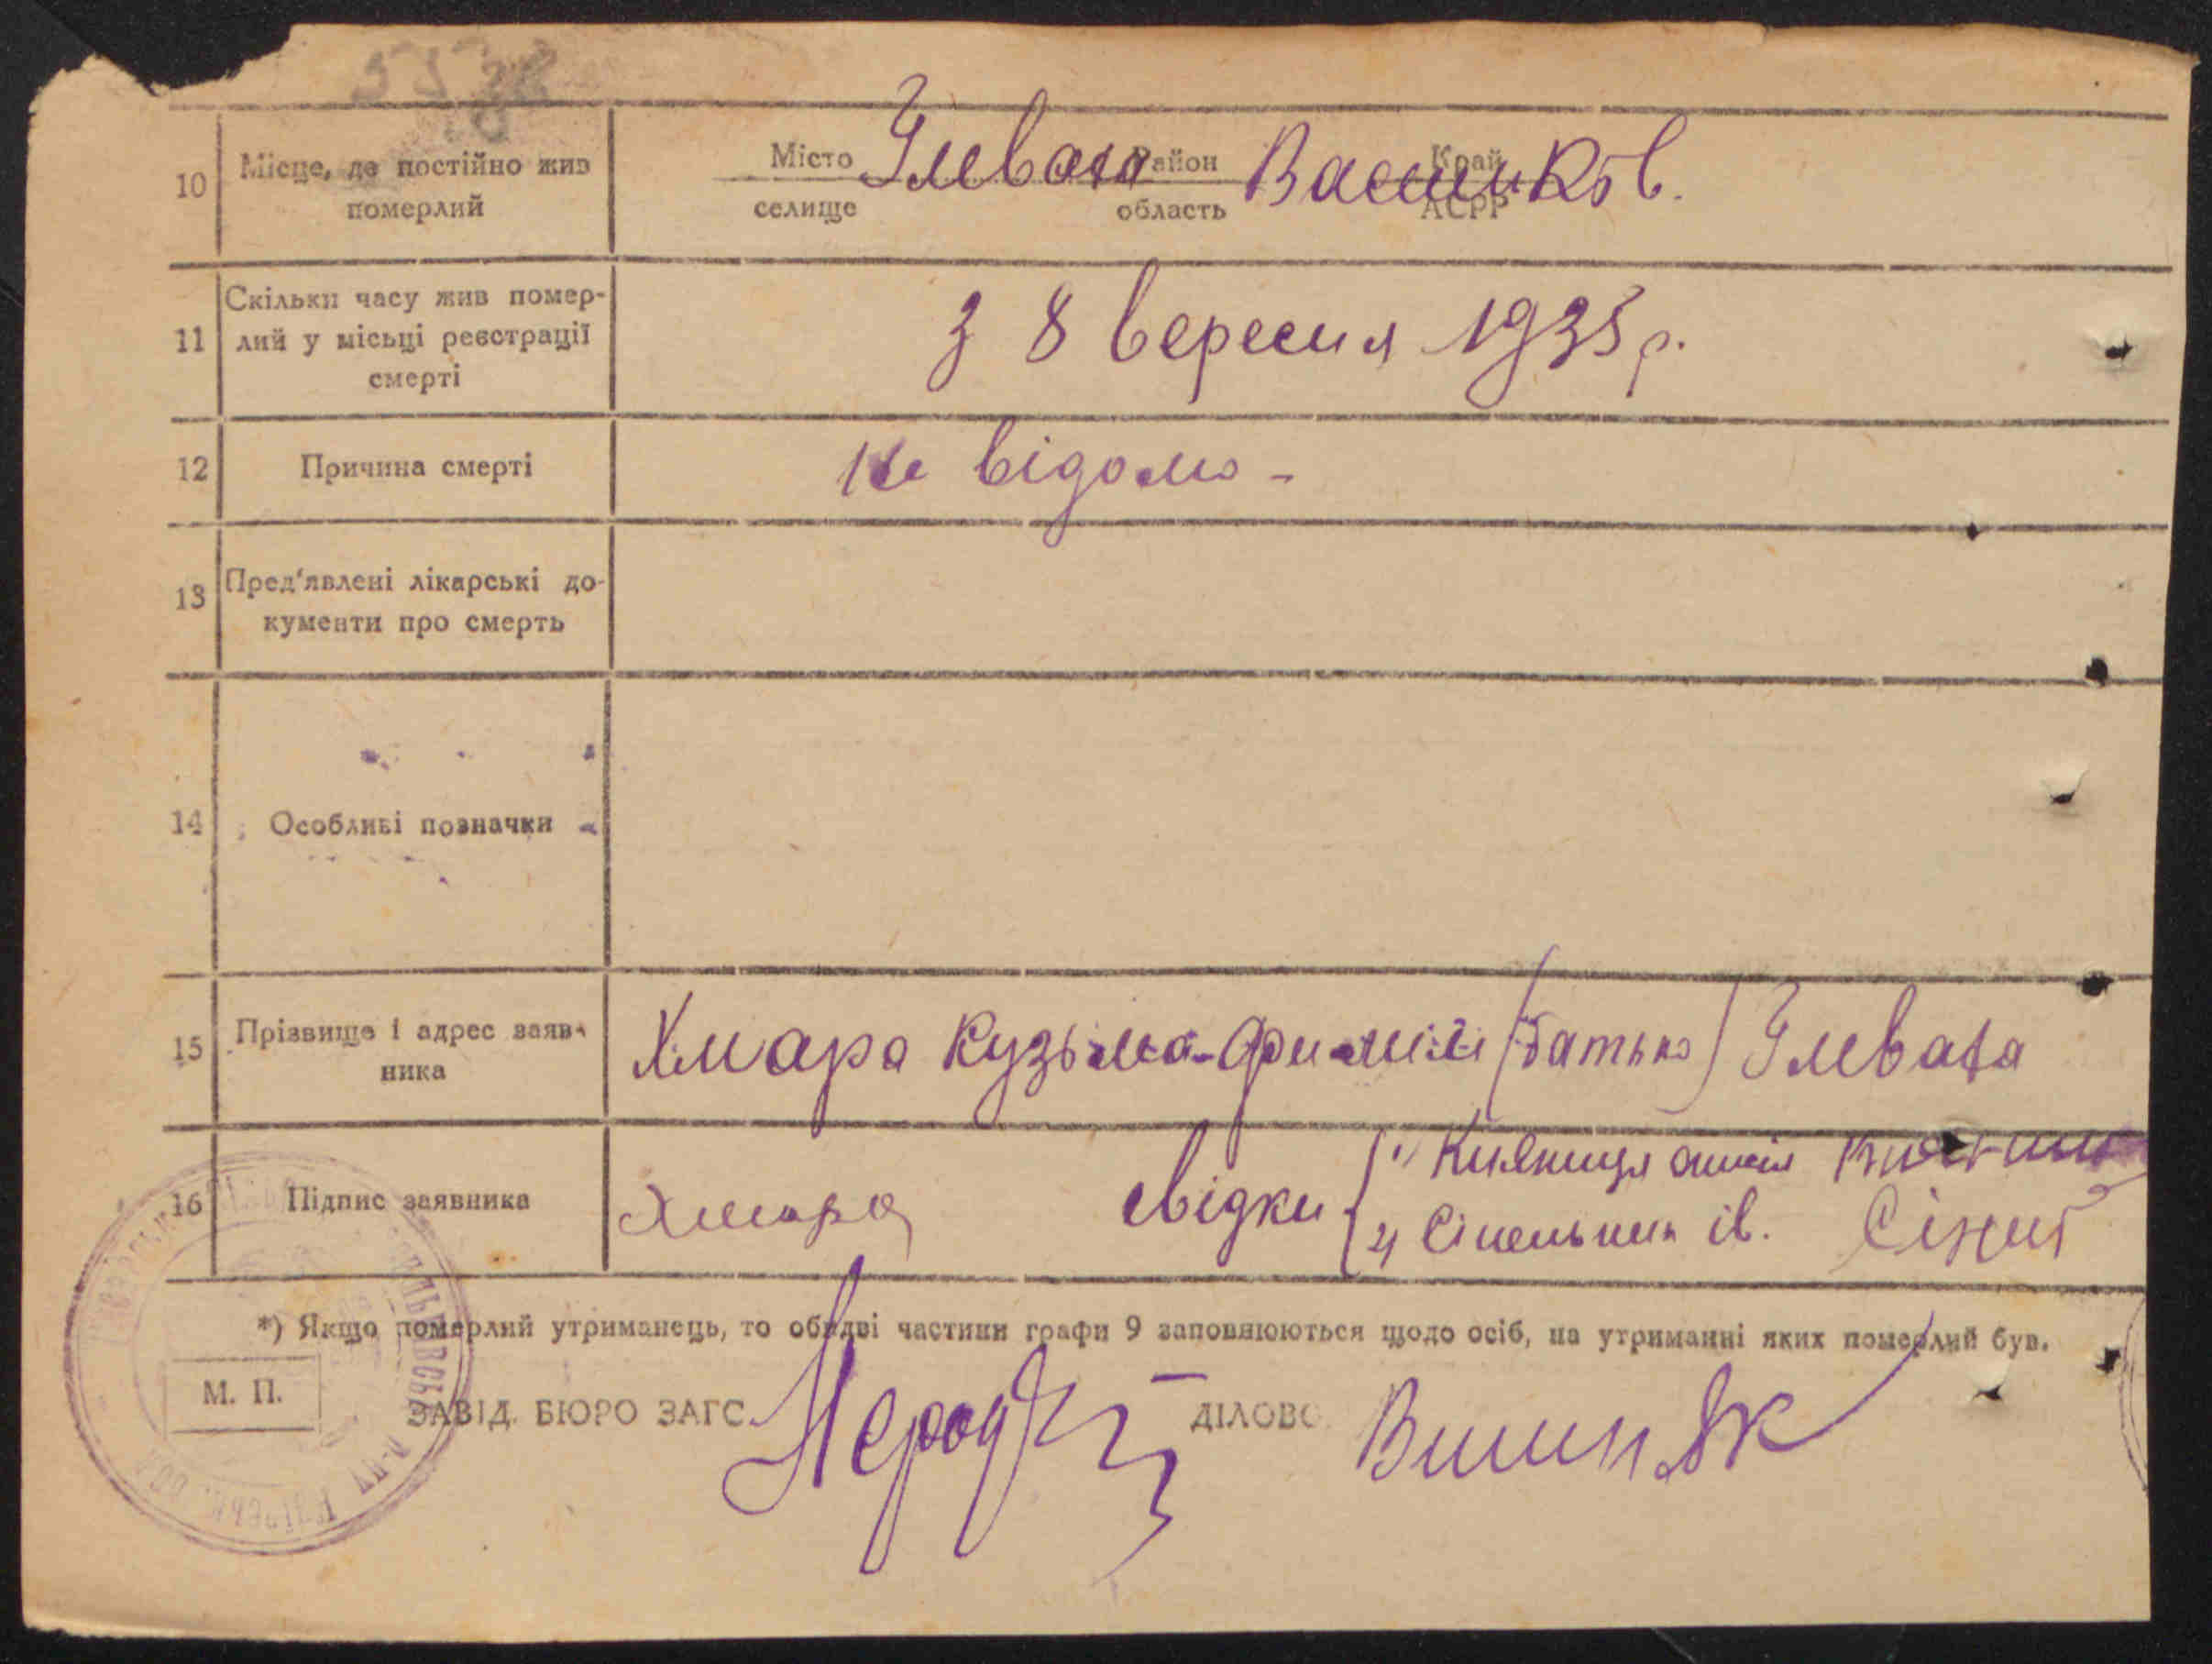 10 Місце, де постійно жив померлий
Місто Глеваха Район Васильков. Край
селище область АСРР
11 Скільки часу жив помер-
лий у місьці реєстрації
смерті
з 8 вересня 1935 р.
12 Причина смерті
Не відомо -
13 Пред'явлені лікарські до-
кументи про смерть
14 Особливі позначки
15 Прізвище і адрес заяв-
ника
Хмара Кузьма (батько) Глеваха
16 Підпис заявника
Хмара свідки 1) Княниця
2) Сінельник ів.
*) Якщо померлий утриманець, то обидві частини графи 9 заповнюються щодо осіб, на утриманні яких померлий був.
М. П.
ЗАВІД. БЮРО ЗАГС. ДІЛОВО. Вишняк